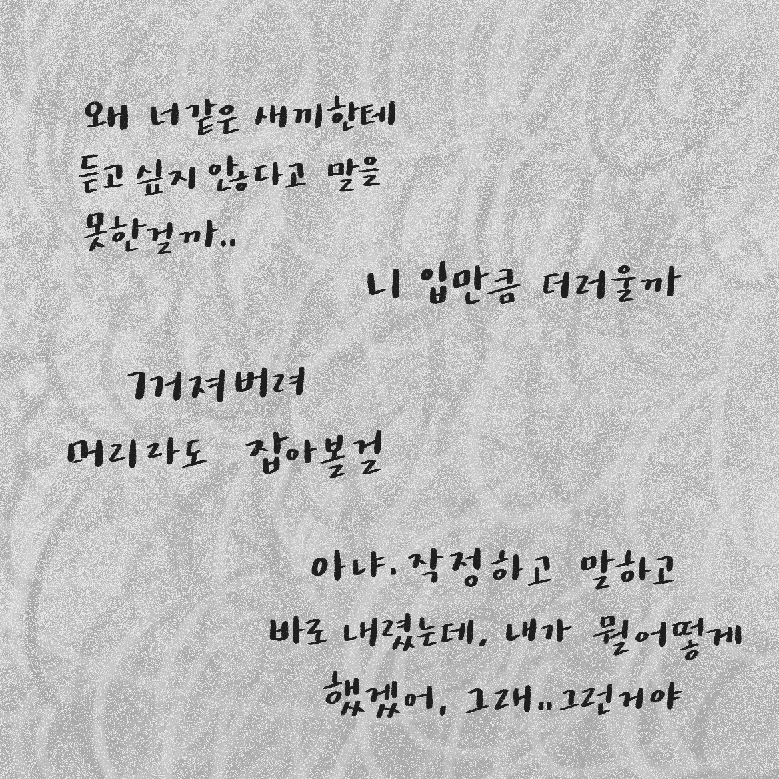 왜 너같은 새끼한테
듣고 싶지 않다고 말을
못한걸까..
니 입만큼 더러울까
꺼져버려
머리라도 잡아볼걸
아냐. 작정하고 말하고
바로 내렸는데, 내가 뭘어떻게
했겠어, 그래.. 그런거야